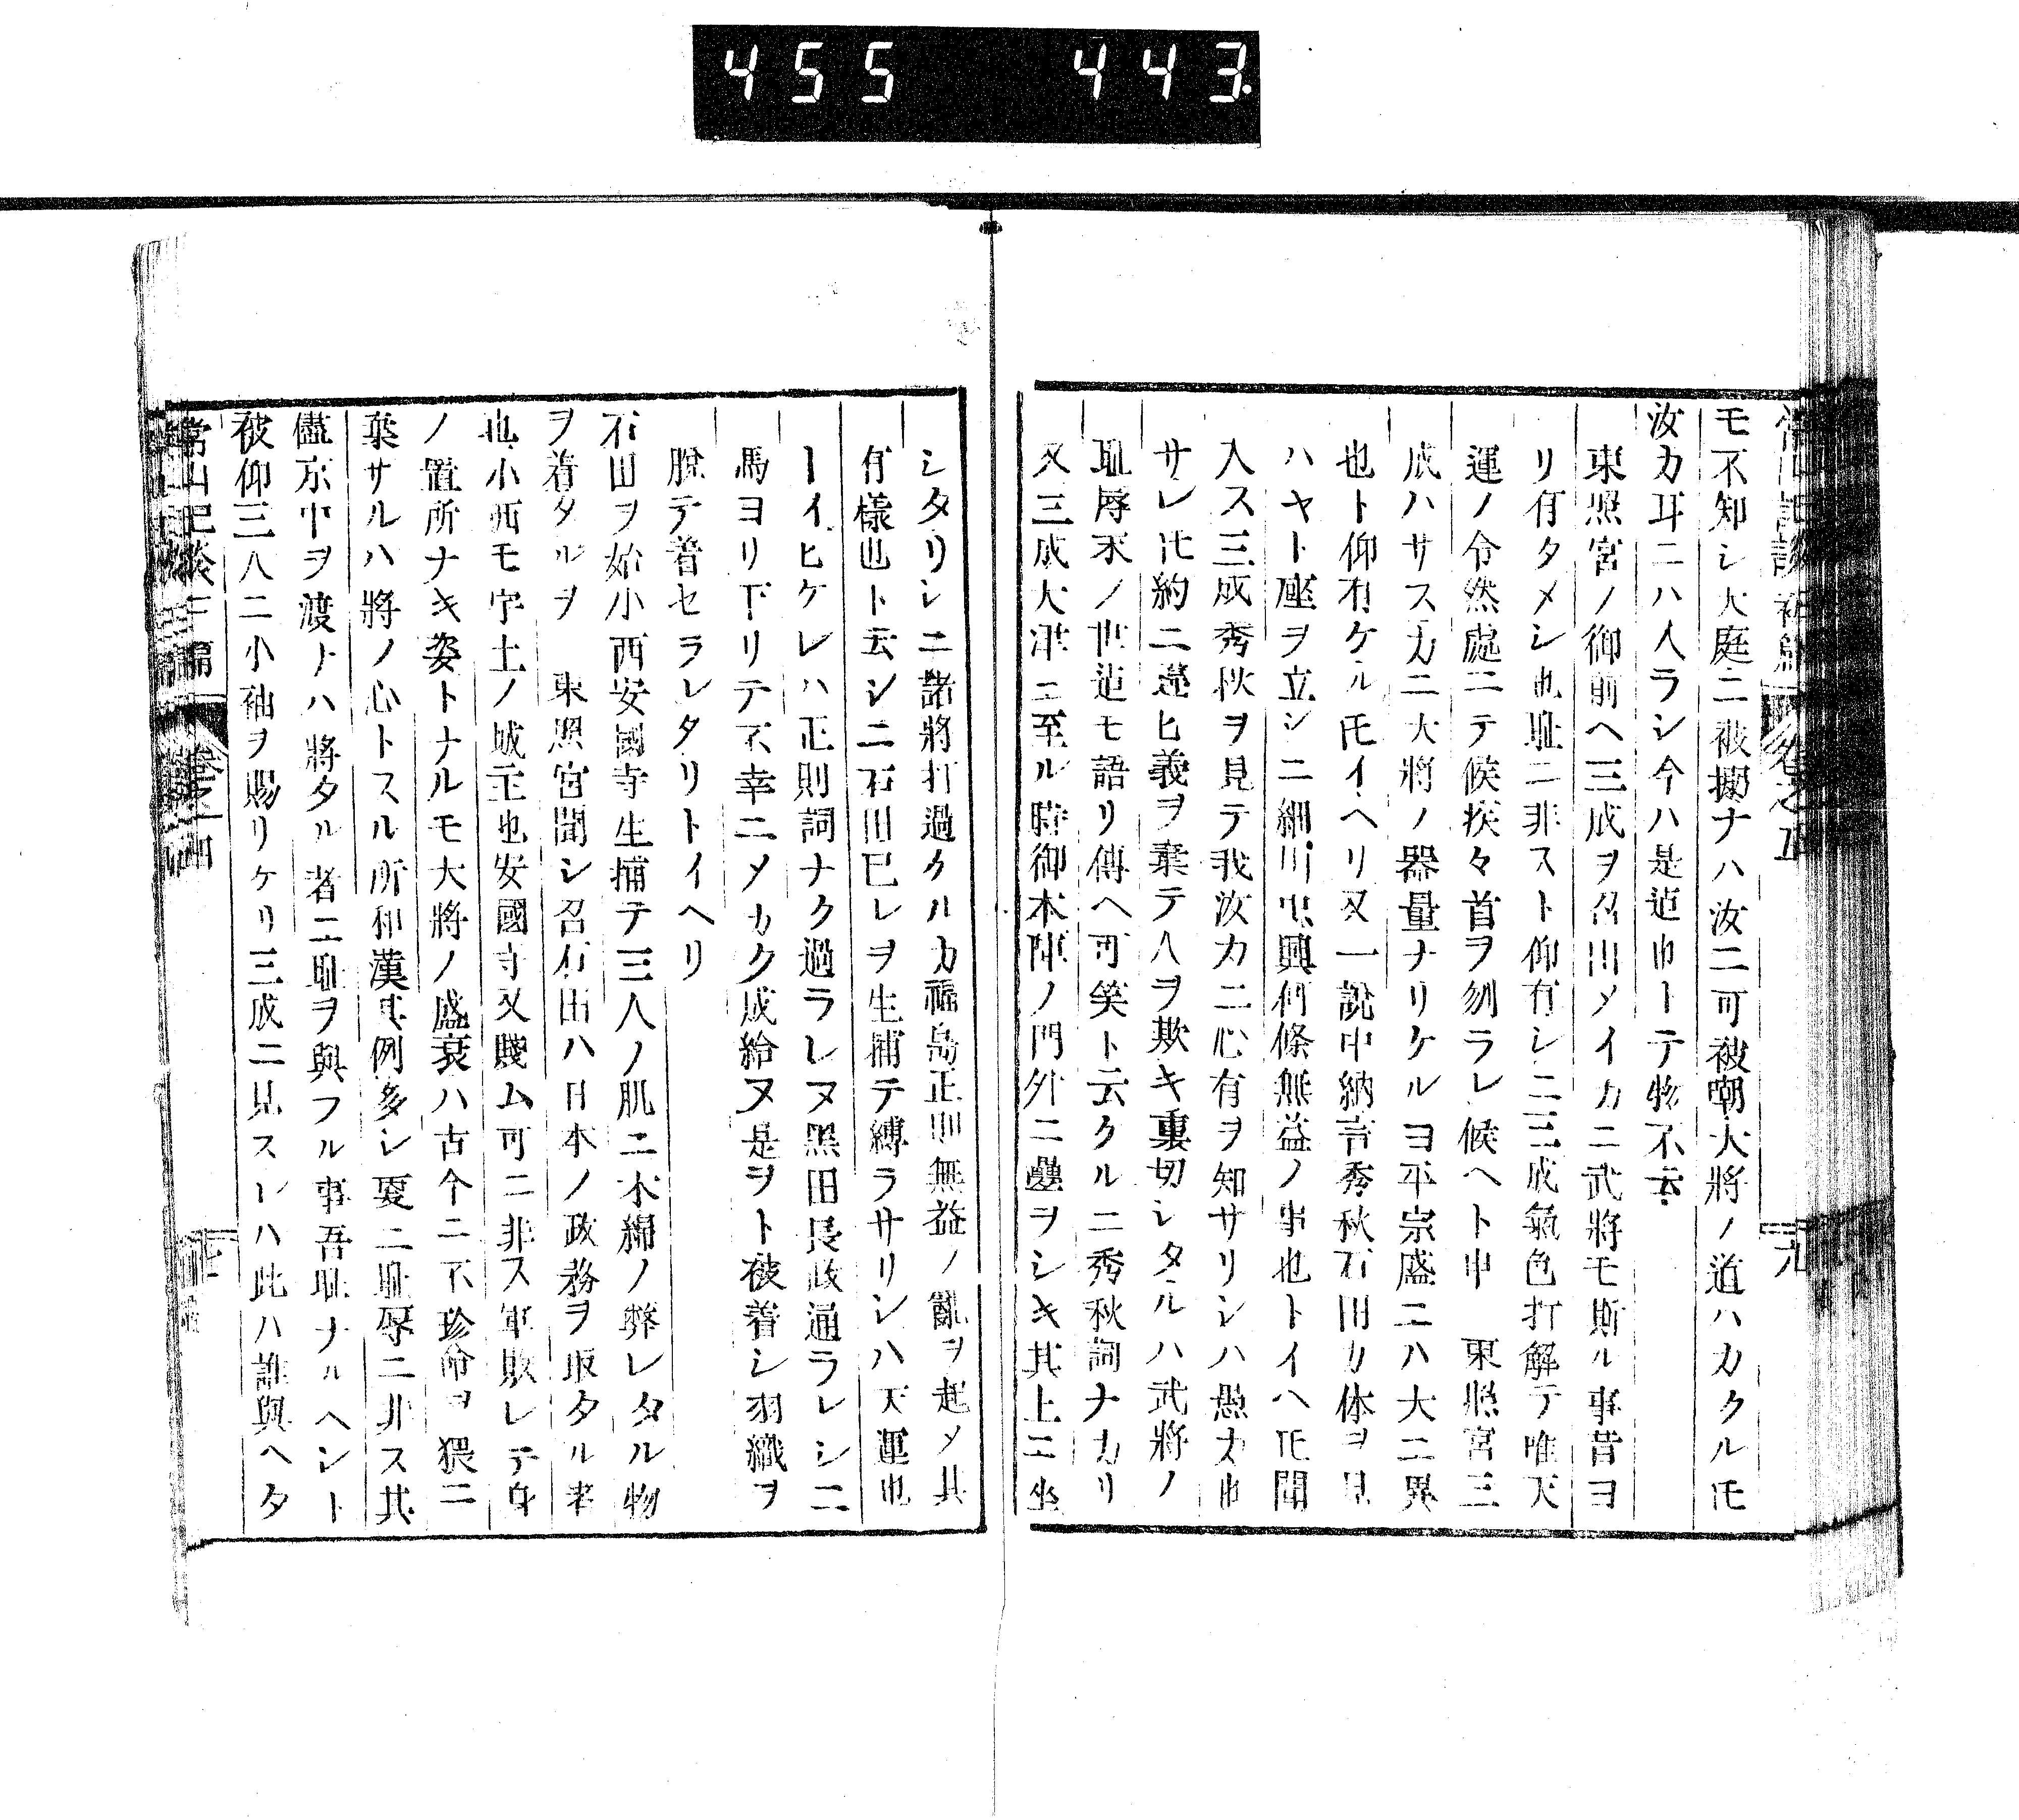 455 443.
モ不知シ大庭ニ被擲ナハ汝ニ可被嘲大將ノ道ハカクル𪜈
汝カ耳ニハ入ラシ今ハ是迠也トテ物不云
東照宮ノ御前ヘ三成ヲ召出メイカニ武將モ斯ル事昔ヨ
リ有タメシ也耻ニ非スト仰有シニ三成氣色打解テ唯天
運ノ令然處ニテ候疾々首ヲ刎ラレ候ヘト申 東照宮三
成ハサスカニ大將ノ器量ナリケルヨ平宗盛ニハ大ニ異
也ト仰有ケル𪜈イヘリ又一說中納言秀秋石田カ体ヲ見
ハヤト座ヲ立シニ細川忠興何條無益ノ事也トイヘ𪜈聞
入ス三成秀秋ヲ見テ我汝カ二心有ヲ知サリシハ愚カ也
サレ𪜈約ニ違ヒ義ヲ棄テ人ヲ欺キ裏切シタルハ武將ノ
耻辱末ノ世迠モ語リ傳ヘ可笑ト云クルニ秀秋詞ナカリ
又三成大津ニ至ル時御本陣ノ門外ニ疊ヲシキ其上ニ坐
シタリシニ諸將打過クルカ福島正則無益ノ亂ヲ起メ其
有樣也ト云シニ石田己レヲ生捕テ縛ラサリシハ天運也
ーイヒケレハ正則詞ナク過ラレヌ黑田長政通ラレシニ
馬ヨリ下リテ不幸ニメカク成給ヌ是ヲト被着シ羽織ヲ
脫テ着セラレタリトイヘリ
石田ヲ始小西安國寺生捕テ三人ノ肌ニ木綿ノ弊レタル物
ヲ着タルヲ 東照宮聞シ召石田ハ日本ノ政務ヲ取タル者
也小西モ宇土ノ城主也安國寺又賤ム可ニ非ス軍敗レテ身
ノ置所ナキ姿トナルモ大將ノ盛衰ハ古今ニ不珍命ヲ猥ニ
棄サルハ將ノ心トスル所和漢其例多シ更ニ耻辱ニ非ス其
儘京中ヲ渡ナハ將タル者ニ耻ヲ與フル事吾耻ナルヘシト
被仰三人ニ小袖ヲ賜リケリ三成ニ見スレハ此ハ誰與ヘタ
常山紀談三編 卷之四